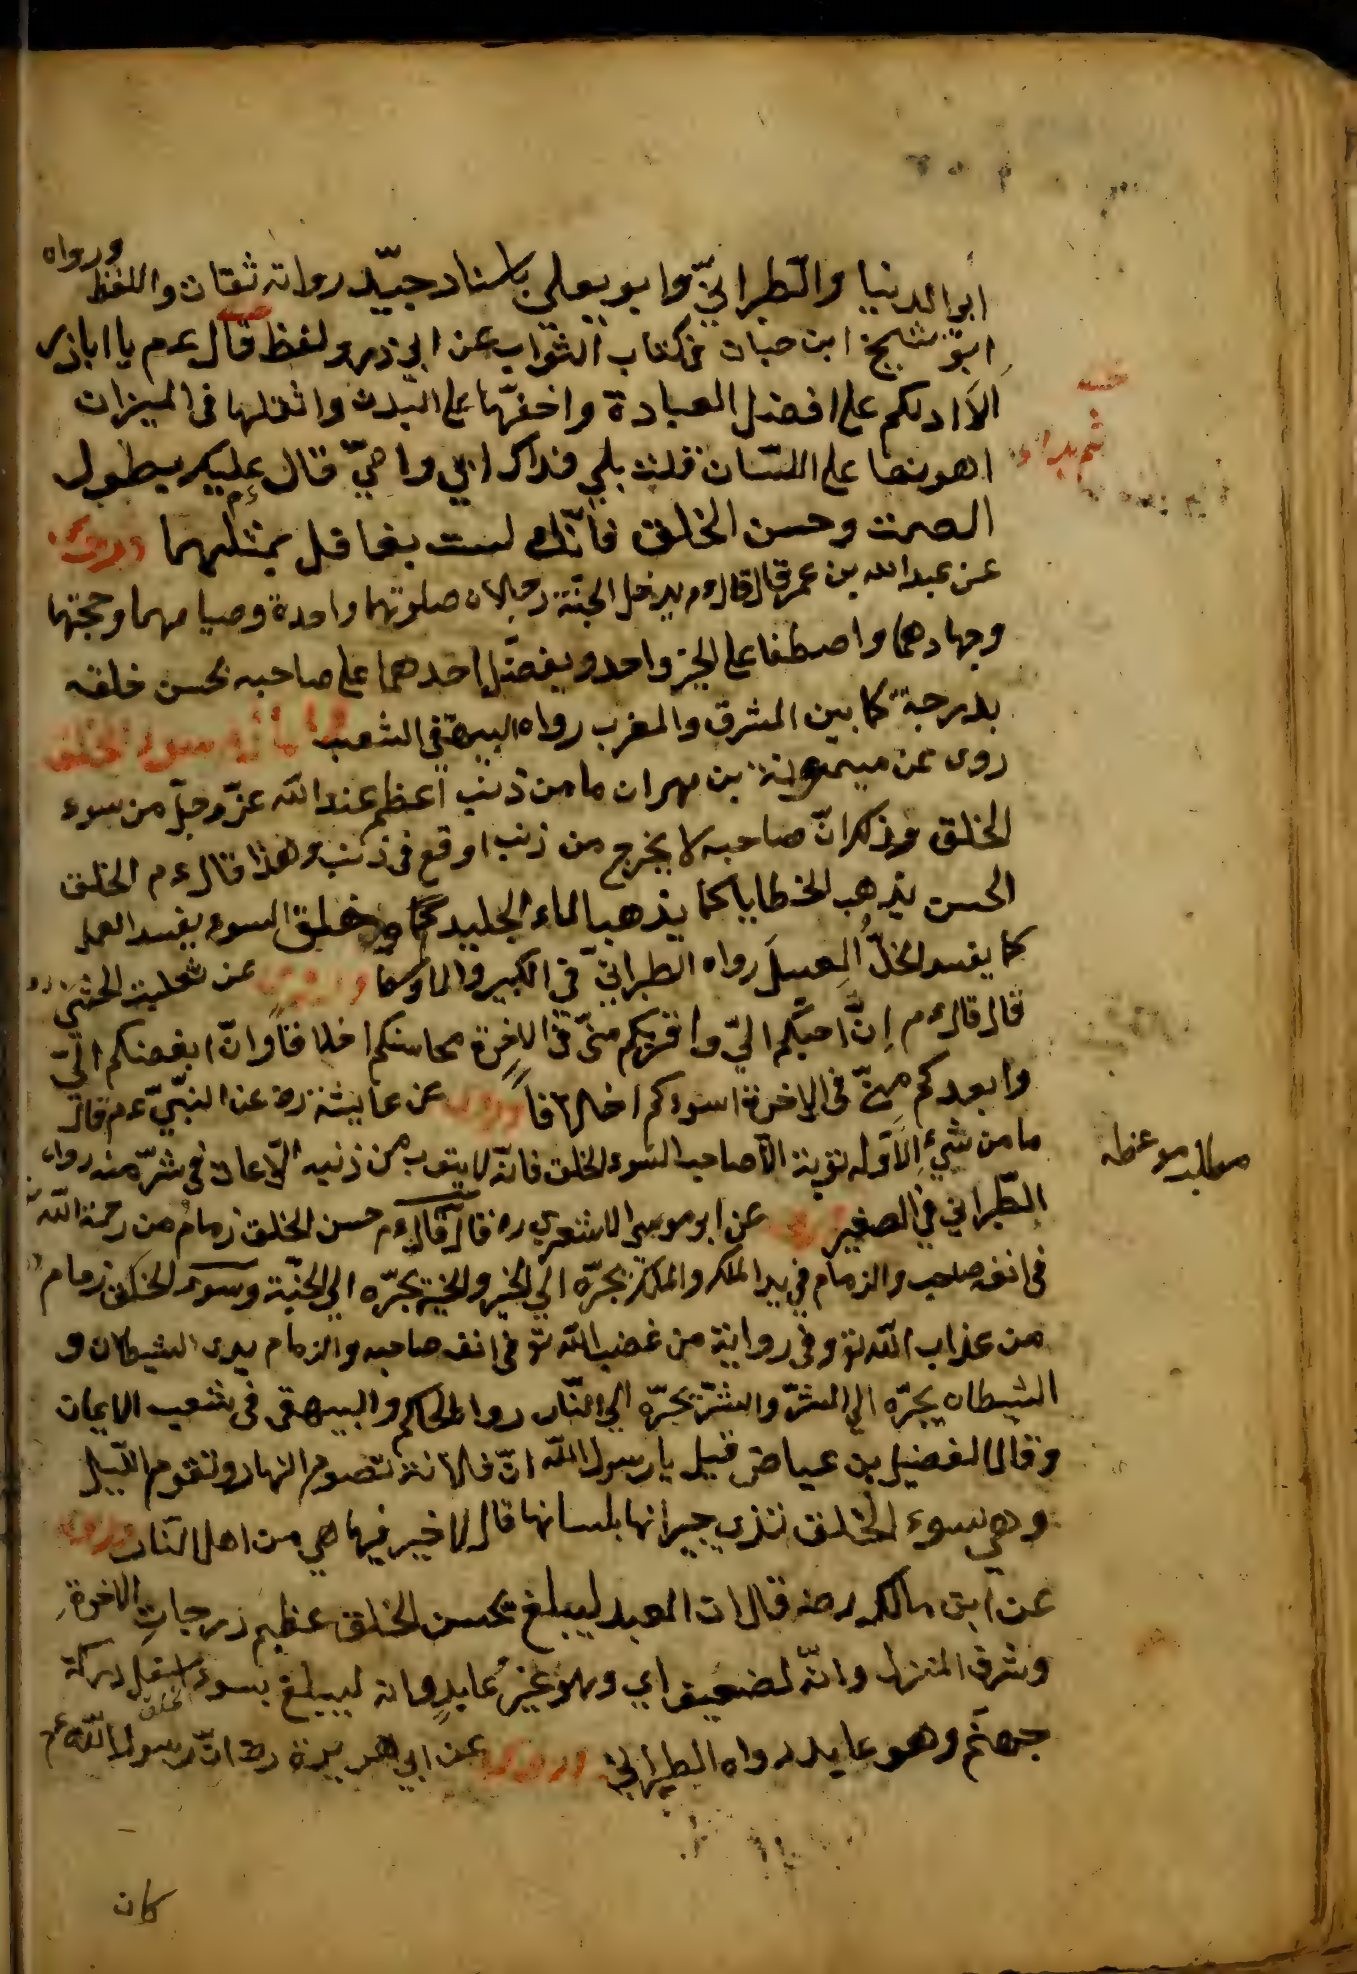 ابو الدنيا والطبرانيّ وابو يعلى باسناد جيّد رواته ثقات واللفظ ورواه
ابو شيخ ابن حبان فى كتاب الثواب عن ابي ذر ولفظ قال ءم يا اباذر
الا ادلكم على افضل العبادة واخفّها على البدن واثقلها فى الميزان
اهونها على اللسان قلت بلى فداك ابي وامّي قال عليك بطول
الصمت وحسن الخلق فانّك لست بعاقل بمثلهما وروى
عن عبدالله بن عمر قال قال ءم يدخل الجنّة رجلان صلوتهما واحدة وصيامهما وحجتهما
وجهادهما واصطفا على الخير واحد ويفضّل احدهما على صاحبه بحسن خلقه
بدرجة كما بين المشرق والمغرب رواه البيهقي فى الشعب سوء الخلق
روى عن ميمونة بن مهران ما من ذنب اعظم عند الله عزّ وجلّ من سوء
الخلق وذكر انّ صاحبه لا يخرج من ذنب اوقع فى ذنب وهذا قال ءم الخلق
الحسن يذهب الخطايا كما يذهب الماء الجليد وخلق السوء يفسد العمل
كما يفسد الخلّ العسل رواه الطبرانيّ فى الكبير والاوسط وروى عن ثعلبة الخشني
قال قال ءم إنّ احبّكم اليّ واقربكم منّي فى الاخرة محاسنكم اخلاقا وانّ ابغضكم اليّ
وابعدكم منّي فى الاخرة اسوءكم اخلاقاً وروى عن عايشة رض عن النبيّ ءم قال
ما من شيء الا وله توبة الا صاحب السوء الخلق فانّه لا يتوب من ذنبه الّا عاد فى شرّ منه رواه
الطّبراني في الصغير وروى عن ابو موسى الاشعري رض قال قال ءم حسن الخلق زمام من رحمة الله
فى انف صاحب والزمام في يد الملك والملك يجرّه الى الخير والخير يجرّه الى الجنّة وسوء الخلق زمام
من عذاب الله تع وفى رواية من غضب الله تع فى انف صاحبه والزمام بيدى الشيطان و
الشيطان يجرّه الى الشرّ والشرّ يجرّه الى النّار رواه الحاكم والبيهقى فى شعب الايمان
وقال الفضيل بن عياض قيل يا رسول الله انّ فلانة تصوم النهار وتقوم الليل
وهي سوء الخلق تذى جيرانها بلسانها قال لا خير فيها هي من اهل النّار وروى
عن ابن مالك رض قال ان العبد ليبلغ بحسن الخلق عظيم درجات الاخرة
وشرف المنزل وانّه لضعيف اي وهو غير عابد وانه ليبلغ بسوء خلق اسفل دركة
جهنّم وهو عابد رواه الطبراني وروى عن ابي هريرة رض انّ رسول الله ءم
كان
مطلب موعظه